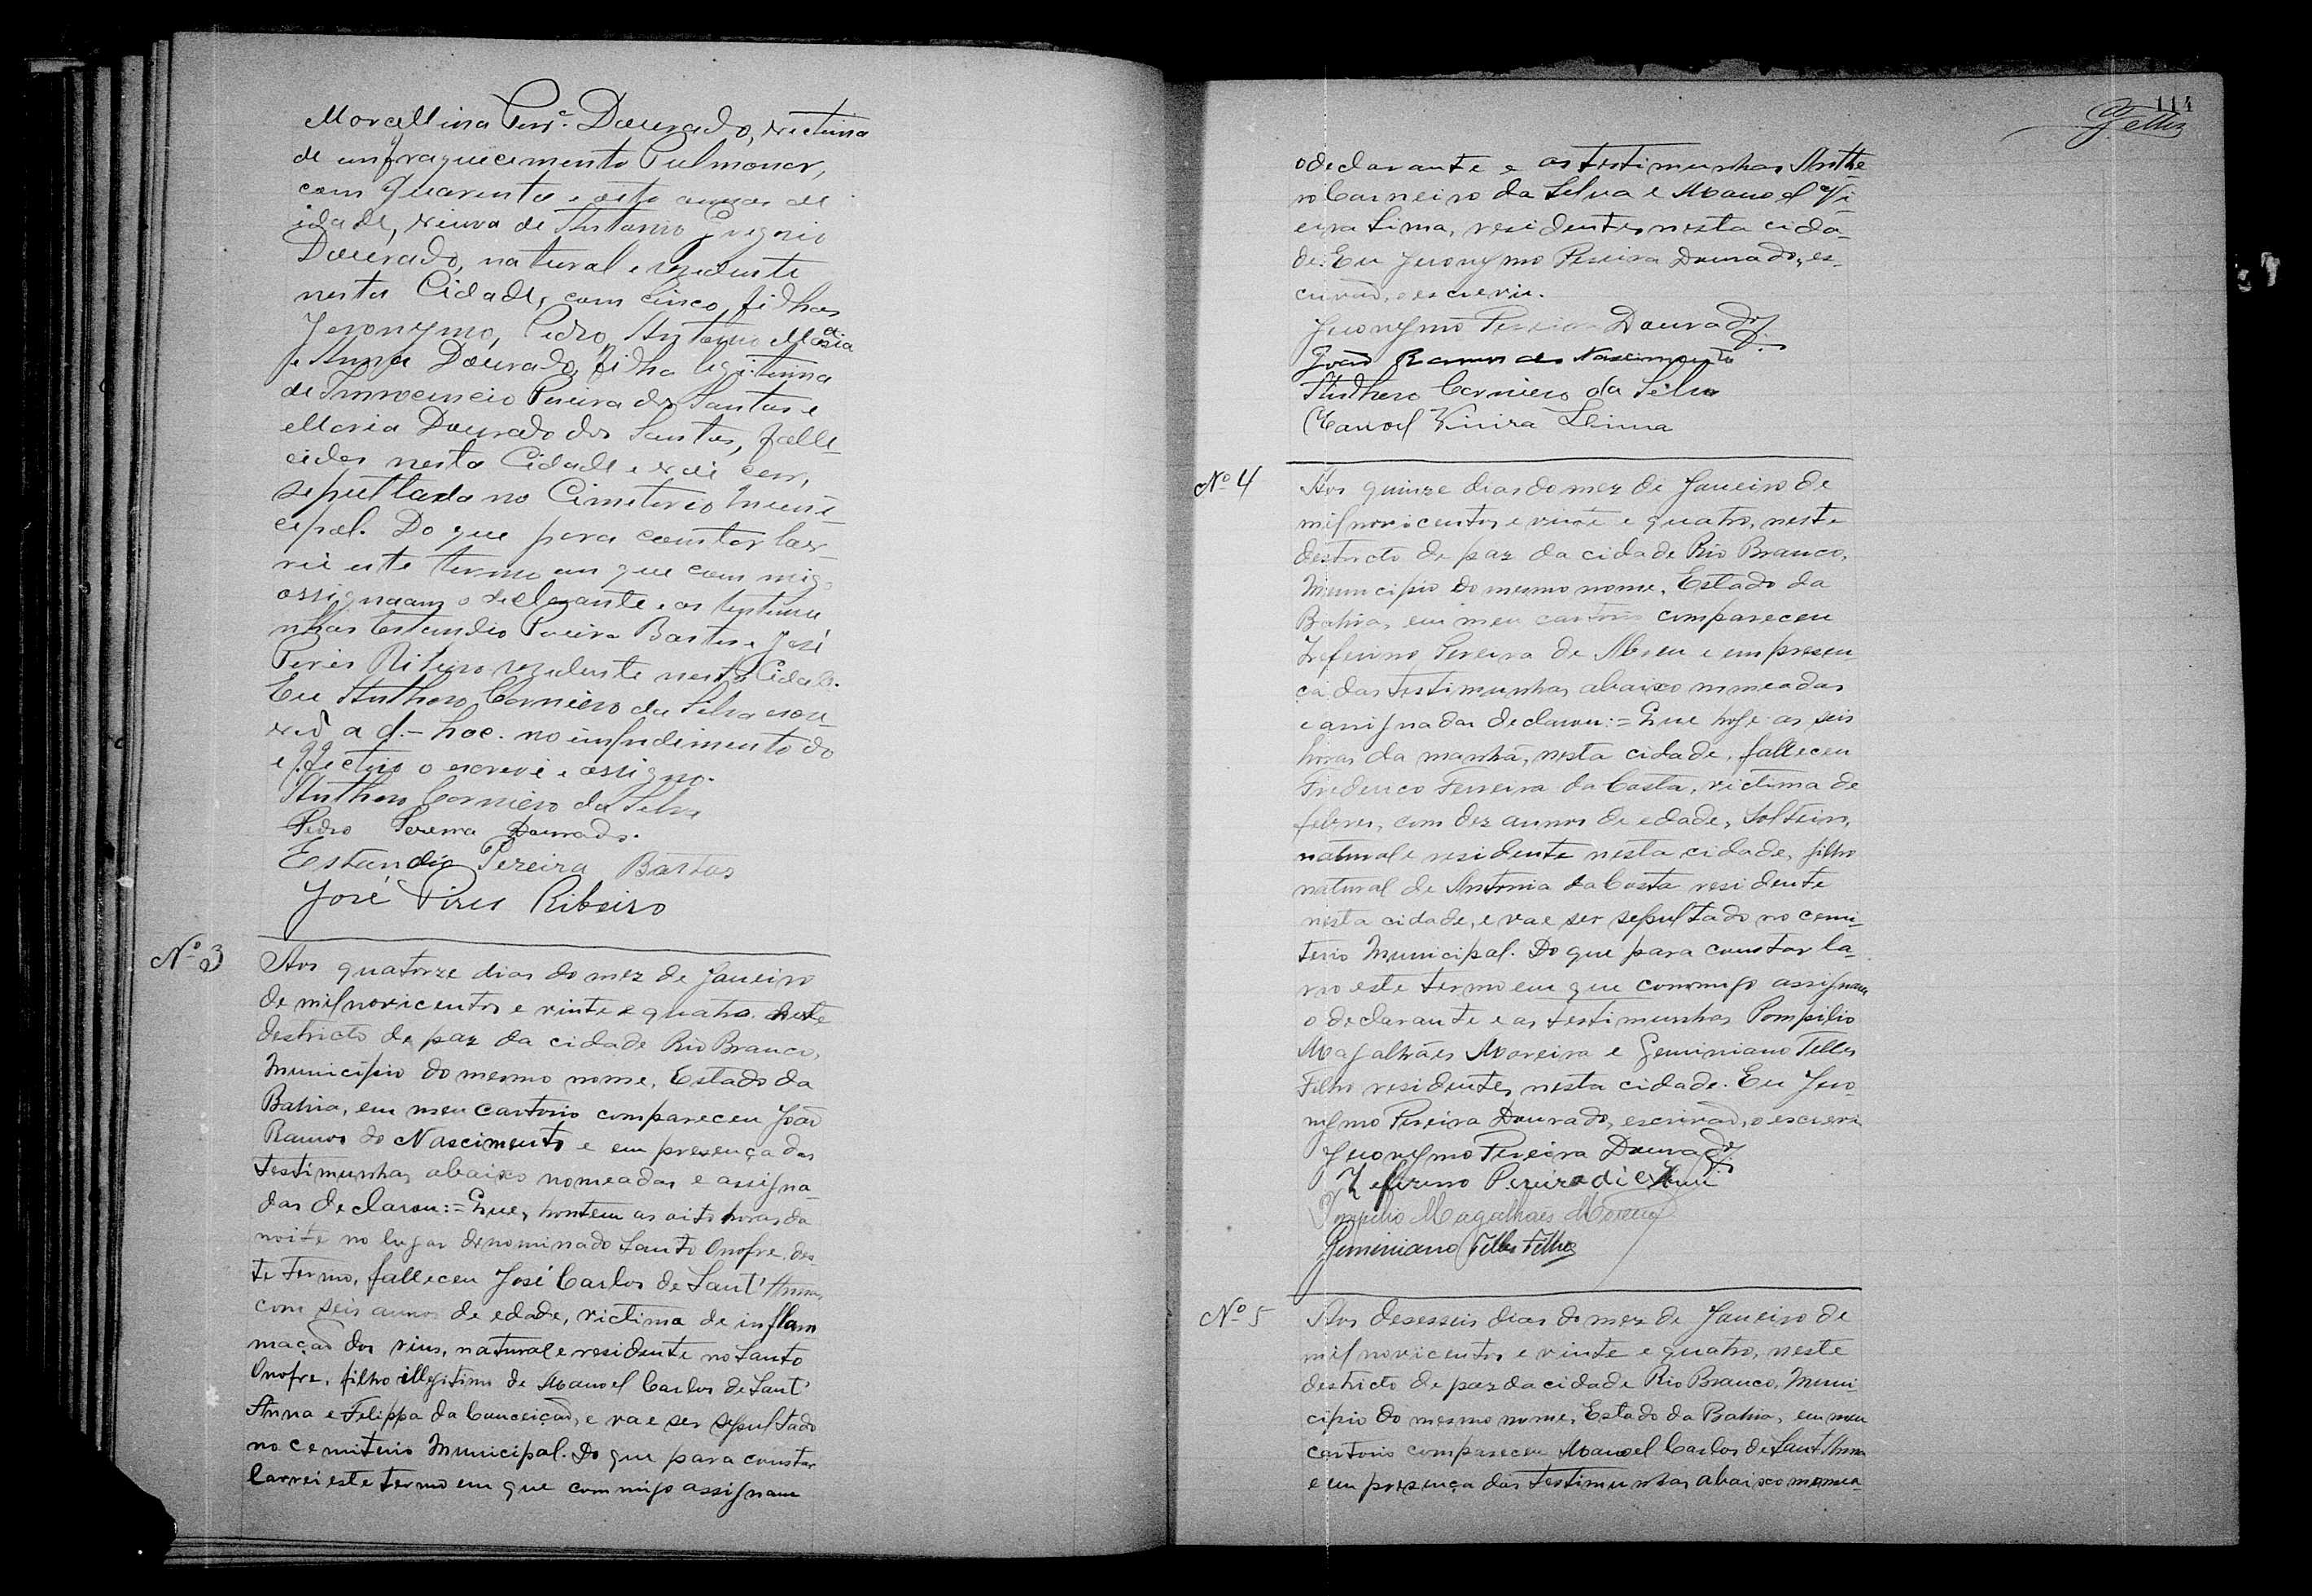 Marcellina Perª. Dourado, victima
de enfraquecimento Pulmonar,
com quarenta e oito annos de
idade, viuva de Antonio Gregorio
Dourado, natural e rezidente
nesta Cidade, com cinco filhos
Jeronymo, Pedro, Antonio Maria
e Anna Dourado, filha legitima
de Innocencio Pereira dos Santos e
Maria Dourado dos Santos, falle-
cidos nesta Cidade e vai ser
sepultada no Cimeterio Muni-
cipal. Do que para constar lav-
rei este termo em que com migo
assignaam o declarante e as testimu
nhas Estandio Pereira Bastos e José
Peris Ribeiro rezidente nesta Cidade.
Eu Anthero Carneiro da Silva escri-
vão ad-hoc. no impidimento do
effectivo o escrevi e assigno.
Anthero Carneiro da Silva
Pedro Pereira Dourado.
Estandio Pereira Bastos
José Pires Ribeiro
Nº 3
Aos quatorze dias do mez de Janeiro
de mil novicentos e vinte e quatro, neste
destricto de paz da cidade Rio Branco,
Municipio do mesmo nome, Estado da
Bahia, em meu cartorio compareceu João
Ramos do Nascimento e em presença das
testimunhas abaixo nomeadas e assigna-
das declarou:= Que, hontem as oito horas da
noite no lugar denominado Santo Onofre, des-
te termo, falleceu José Carlos de Sant'Anna,
com seis annos de edade, victima de inflam
mação dos rins, natural e residente no Santo
Onofre, filho illegitimo de Manoel Carlos de Sant'
Anna e Felippa da Conceição, e vae ser sepultado
no cemiterio Municipal. Do que para constar
larvei este termo em que commigo assignam
114
Telles
o declarante e as testimunhas Anthe
ro Carneiro da Silva e Manoel Vi
eira Lima, residentes nesta cida-
de. Eu Jeronymo Pereira Dourado, es-
crivão, o escrevi.
Jeronymo Pereira Dourado
João Ramos do Nascimento
Anthero Carneiro da Silva
Manoel Vieira Lima
Nº 4
Aos quinze dias do mez de Janeiro de
mil novicentos e vinte e quatro, neste
destricto de paz da cidade Rio Branco,
Municipio do mesmo nome, Estado da
Bahia, em meu cartorio compareceu
Zeferino Pereira de Abreu e em presen-
ça das testimunhas abaixo nomeadas
e assignadas declarou:= Que hoje as seis
horas da manhã, nesta cidade, falleceu
Frederico Ferreira da Costa, victima de
febres, com dez annos de edade, Solteiro,
natural e residente nesta cidade, filho
natural de Antonia da Costa residente
nesta cidade, e vae ser sepultado no cemi-
terio Municipal. Do que para constar la-
vro este termo em que commigo assignam
o declarante e as testimunhas Pompilio
Magalhães Moreira e Geminiano Telles
Filho residentes nesta cidade. Eu Jero-
nymo Pereira Dourado, escrivão, o escrevi
Jeronymo Pereira Dourado
Zeferino Pereira di Abreu
Pompilio Magalhães Moreira
Geminiano Telles Filho
Nº 5
Aos deseseis dias do mez de Janeiro de
mil novicentos e vinte e quatro, neste
destricto de paz da cidade Rio Branco, Muni-
cipio do mesmo nome, Estado da Bahia, em meu
cartorio compareceu Manoel Carlos de Sant'Anna
e em presença das testimunhas abaixo nomea-